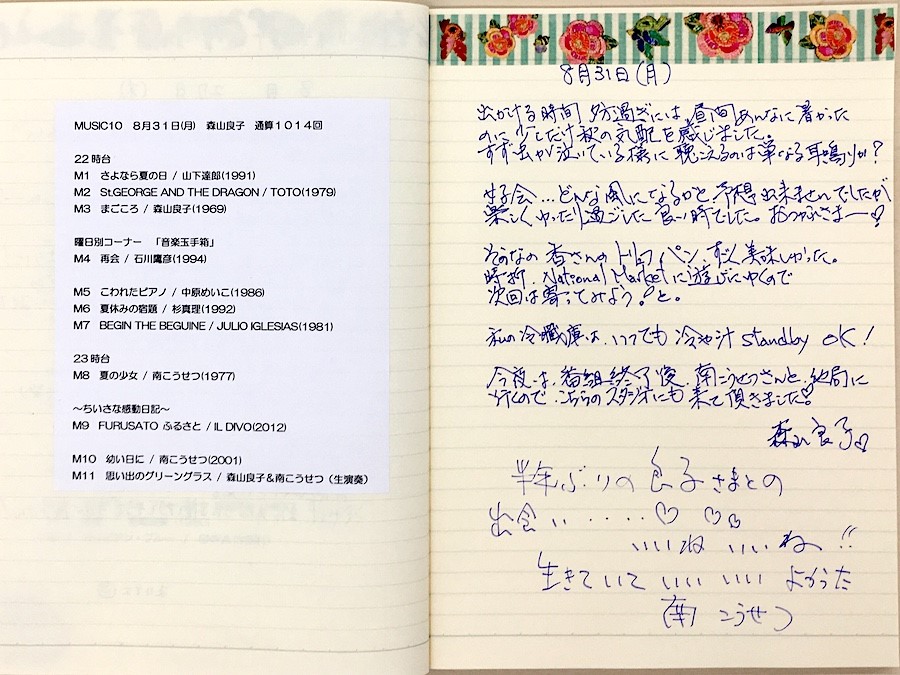 MUSIC10 8月31日(月) 森山良子 通算1014回
22時台
M1 さよなら夏の日 / 山下達郎(1991)
M2 St.GEORGE AND THE DRAGON / TOTO(1979)
M3 まごころ / 森山良子(1969)
曜日別コーナー 「音楽玉手箱」
M4 再会 / 石川鷹彦(1994)
M5 こわれたピアノ / 中原めいこ(1986)
M6 夏休みの宿題 / 杉真理(1992)
M7 BEGIN THE BEGUINE / JULIO IGLESIAS(1981)
23時台
M8 夏の少女 / 南こうせつ(1977)
～ちいさな感動日記～
M9 FURUSATO ふるさと / IL DIVO(2012)
M10 幼い日に / 南こうせつ(2001)
M11 思い出のグリーングラス / 森山良子＆南こうせつ（生演奏）
8月31日(月)
出かける時間 夕方過ぎには、昼間あんなに暑かった
のに少しだけ秋の気配を感じました。
すず虫が泣いている様に聴こえるのは単なる耳鳴りか?
女子会...どんな風になるかと予想出来ませんでしたが
楽しくゆったり過ごした良い時でした。おつかれさまー♡
香さんの ドリア、ペン、すごく美味しかった。
時折、National Marketに遊びにゆくので
次回は寄ってみよう!と。
私の冷蔵庫は、いつでも冷や汁 standby OK!
今夜は、番組終了後、南こうせつさんと
行くので、こちらのスタジオにも来て頂きました♡
森山良子♡
半年ぶりの良子さまとの
出会い・・・・・♡ ♡♡
いいね いいね!!
生きていて いい いい よかった
南 こうせつ